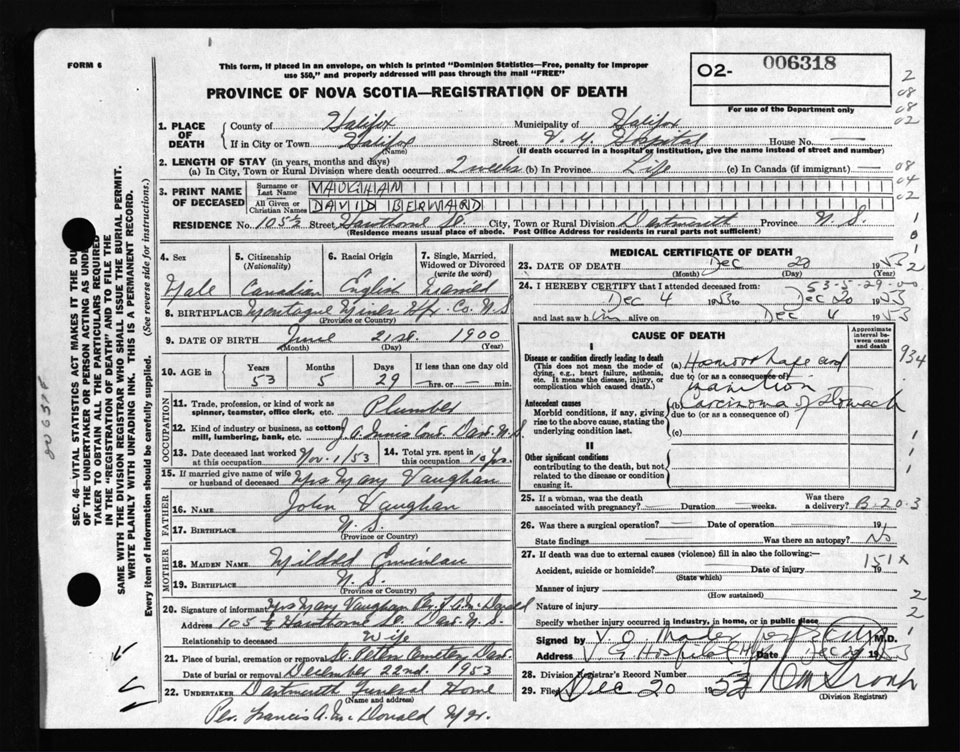 FORM 6
This form, if placed in an envelope, on which is printed "Dominion Statistics—Free, penalty for improper
use $50," and properly addressed will pass through the mail "FREE"
PROVINCE OF NOVA SCOTIA—REGISTRATION OF DEATH
O2- 006318
For use of the Department only
1. PLACE OF DEATH
County of Halifax Municipality of Halifax
If in City or Town Halifax (Name) Street V. G. Hospital House No. —
(If death occurred in a hospital or institution, give the name instead of street and number)
2. LENGTH OF STAY (in years, months and days)
(a) In City, Town or Rural Division where death occurred 2 weeks (b) In Province Life (c) In Canada (if immigrant) —
3. PRINT NAME OF DECEASED
Surname or Last Name VAUGHAN
All Given or Christian Names DAVID BERNARD
RESIDENCE No. 105½ Street Hawthorne St. City, Town or Rural Division Dartmouth Province N. S.
(Residence means usual place of abode. Post Office Address for residents in rural parts not sufficient)
4. Sex Male
5. Citizenship (Nationality) Canadian
6. Racial Origin English
7. Single, Married, Widowed or Divorced (write the word) Married
8. BIRTHPLACE Montague Mines Hfx. Co. N.S.
(Province or Country)
9. DATE OF BIRTH June 21st. 1900
(Month) (Day) (Year)
10. AGE in Years 53 Months 5 Days 29 If less than one day old — hrs. or — min.
OCCUPATION
11. Trade, profession, or kind of work as spinner, teamster, office clerk, etc. Plumber
12. Kind of industry or business, as cotton mill, lumbering, bank, etc. Dart. N.S.
13. Date deceased last worked at this occupation Nov. 1/53
14. Total yrs. spent in this occupation 10 yrs.
15. If married give name of wife or husband of deceased Mrs Mary Vaughan
FATHER
16. NAME John Vaughan
17. BIRTHPLACE N. S.
(Province or Country)
MOTHER
18. MAIDEN NAME
19. BIRTHPLACE N. S.
(Province or Country)
20. Signature of informant Mrs Mary Vaughan Per. F. A. McDonald
Address 105½ Hawthorne St. Dart. N. S.
Relationship to deceased Wife
21. Place of burial, cremation or removal St. Peters Cemetery Dart.
Date of burial or removal December 22nd. 1953
22. UNDERTAKER Dartmouth Funeral Home
(Name and address)
Per. Francis A. McDonald Mgr.
MEDICAL CERTIFICATE OF DEATH
23. DATE OF DEATH Dec 20 1953
(Month) (Day) (Year)
53-5-29-00
24. I HEREBY CERTIFY that I attended deceased from:
Dec 4 1953 to Dec 20 1953
and last saw him alive on Dec 4 1953
CAUSE OF DEATH
Approximate interval between onset and death
I
Disease or condition directly leading to death
(This does not mean the mode of dying, e.g., heart failure, asthenia, etc. It means the disease, injury, or complication which caused death.)
(a) Hemorrhage and
due to (or as a consequence of) inanition
Antecedent causes
Morbid conditions, if any, giving rise to the above cause, stating the underlying condition last.
(b) Carcinoma of stomach
due to (or as a consequence of)
(c)
II
Other significant conditions
contributing to the death, but not related to the disease or condition causing it.
934
25. If a woman, was the death associated with pregnancy? — Duration weeks. Was there a delivery? B-20-3
26. Was there a surgical operation? — Date of operation 19
State findings Was there an autopsy? No
27. If death was due to external causes (violence) fill in also the following:—
151X
Accident, suicide or homicide? Date of injury 19
(State which)
Manner of injury
(How sustained)
Nature of injury
Specify whether injury occurred in industry, in home, or in public place
Signed by M.D.
Address V G Hospital Date Dec 20 1953
28. Division Registrar's Record Number
29. Filed Dec 20 1953
(Division Registrar)
SEC. 46—VITAL STATISTICS ACT MAKES IT THE DUTY
OF THE UNDERTAKER OR PERSON ACTING AS UNDERTAKER TO OBTAIN ALL THE PARTICULARS REQUIRED
IN THE "REGISTRATION OF DEATH" AND TO FILE THE
SAME WITH THE DIVISION REGISTRAR WHO SHALL ISSUE THE BURIAL PERMIT.
WRITE PLAINLY WITH UNFADING INK. THIS IS A PERMANENT RECORD.
Every item of information should be carefully supplied. (See reverse side for instructions.)